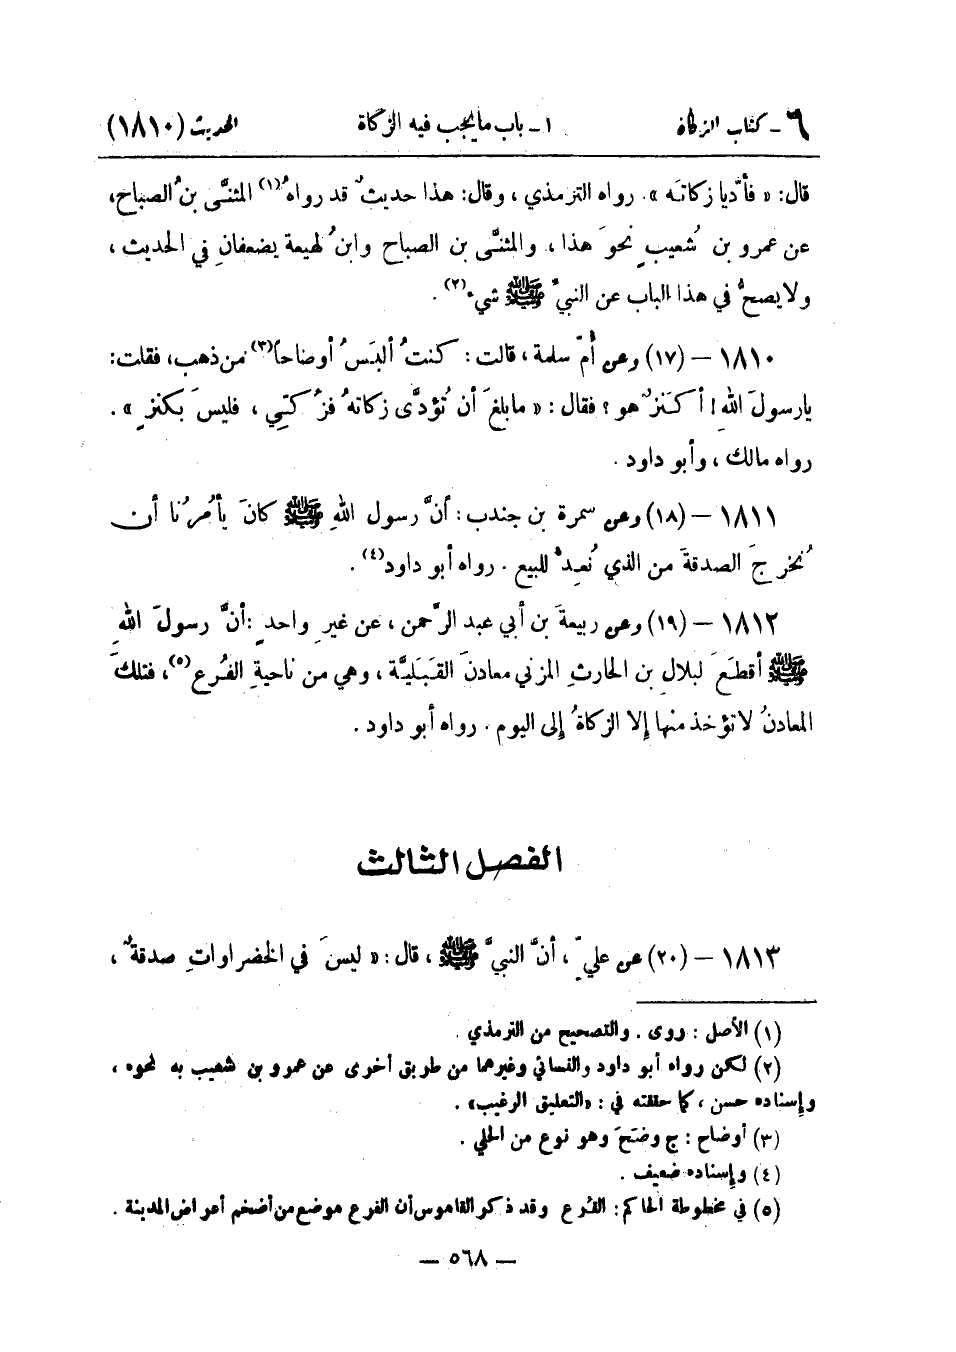 ٦ - كتاب الزكاة ١ - باب ما يجب فيه الزكاة الحديث (١٨١٠)
قال: « فأدّيا زكاتَه ». رواه الترمذي ، وقال: هذا حديثٌ قد رواهُ(١) المثنَّى بنُ الصباح،
عن عمرو بن شُعيبٍ نحوَ هذا ، والمثنَّى بن الصباح وابنُ لهيعة يضعفانِ في الحديث ،
ولا يصحُّ في هذا الباب عن النبيِّ ﷺ شيء(٢) .
١٨١٠ – (١٧) وعن أمّ سلمة ، قالت : كنتُ ألبَسُ أوضاحاً(٣) من ذهب، فقلت:
يا رسولَ اللهِ ! أكَنزٌ هو ؟ فقال : « ما بلغَ أن تُؤدَّى زكاتهُ فزُكّيَ ، فليسَ بكنزٍ » .
رواه مالك ، وأبو داود .
١٨١١ – (١٨) وعن سمرة بن جندب : أنَّ رسول اللهِ ﷺ كانَ يأمُرُنا أن
نُخرجَ الصدقةَ من الذي نُعِدُّ للبيع . رواه أبو داود(٤) .
١٨١٢ – (١٩) وعن ربيعةَ بن أبي عبد الرّحمن ، عن غيرِ واحدٍ : أنَّ رسولَ اللهِ
ﷺ أقطَعَ لبلالِ بن الحارثِ المزني معادنَ القَبَليَّة ، وهي من ناحيةِ الفُرع(٥)، فتلكَ
المعادنُ لا تؤخذ منها إلا الزكاةُ إلى اليوم . رواه أبو داود .
الفصل الثالث
١٨١٣ – (٢٠) عن عليّ ، أنَّ النبيَّ ﷺ ، قال : « ليسَ في الخضراواتِ صدقةٌ ،
(١) الأصل : روى . والتصحيح من الترمذي .
(٢) لكن رواه أبو داود والنسائي وغيرهما من طريق أخرى عن عمرو بن شعيب به نحوه ،
وإسناده حسن ، كما حققته في : «التعليق الرغيب» .
(٣) أوضاح : ج وضَحَ وهو نوع من الحلي .
(٤) وإسناده ضعيف .
(٥) في مخطوطة الحاكم : القُرع وقد ذكر القاموس أن الفرع موضع من أضخم أعراض المدينة .
— ٥٦٨ —